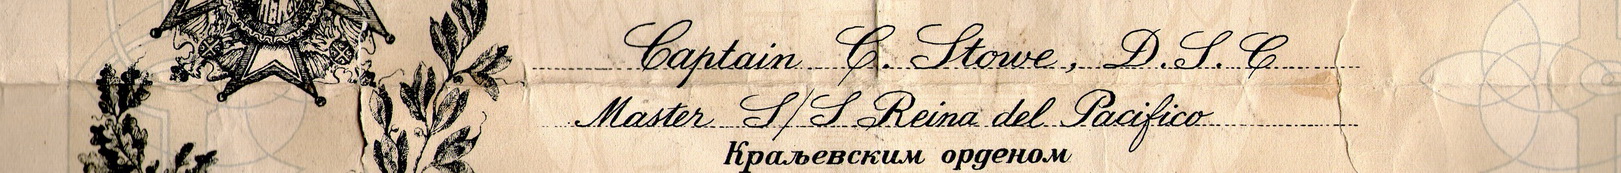 Captain C. Stowe, D.S.C
Master S/S Reina del Pacifico
Краљевским орденом